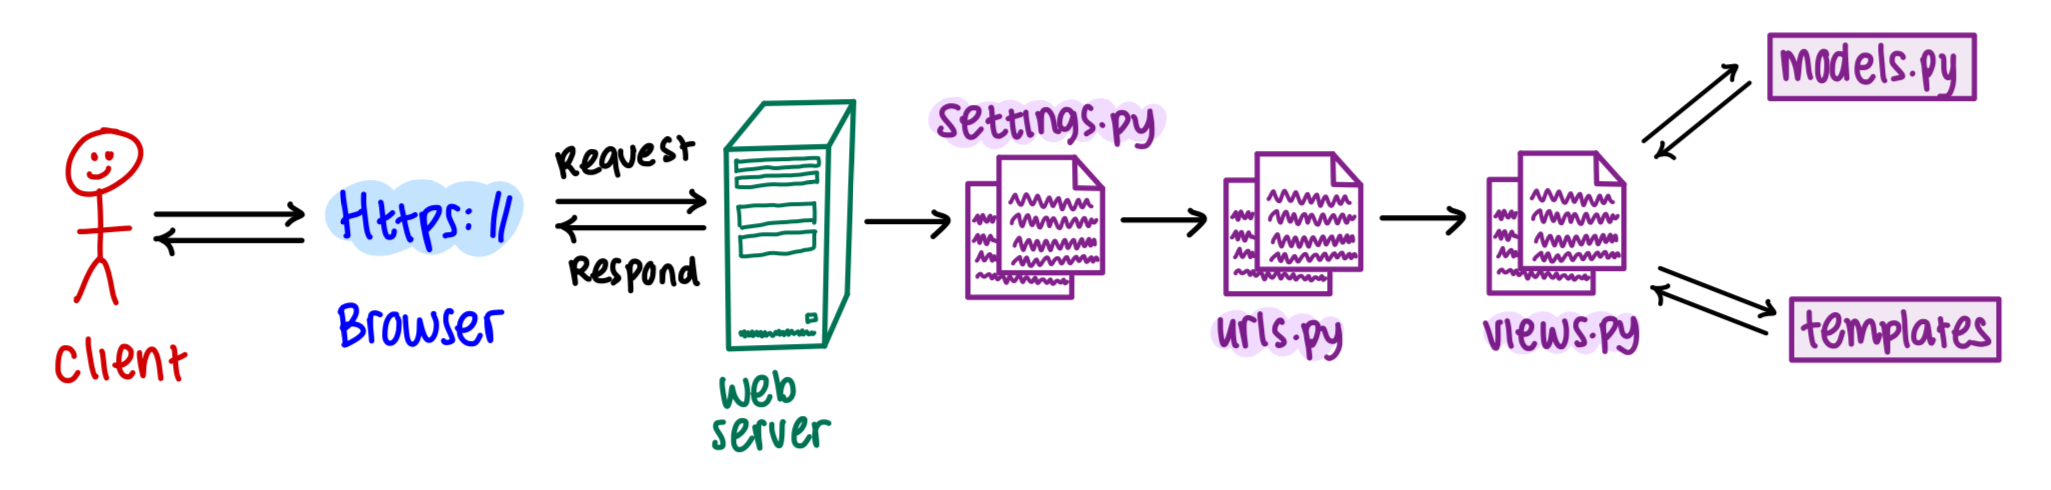 client
Https://
Browser
Request
Respond
web
server
settings.py
urls.py
views.py
models.py
templates